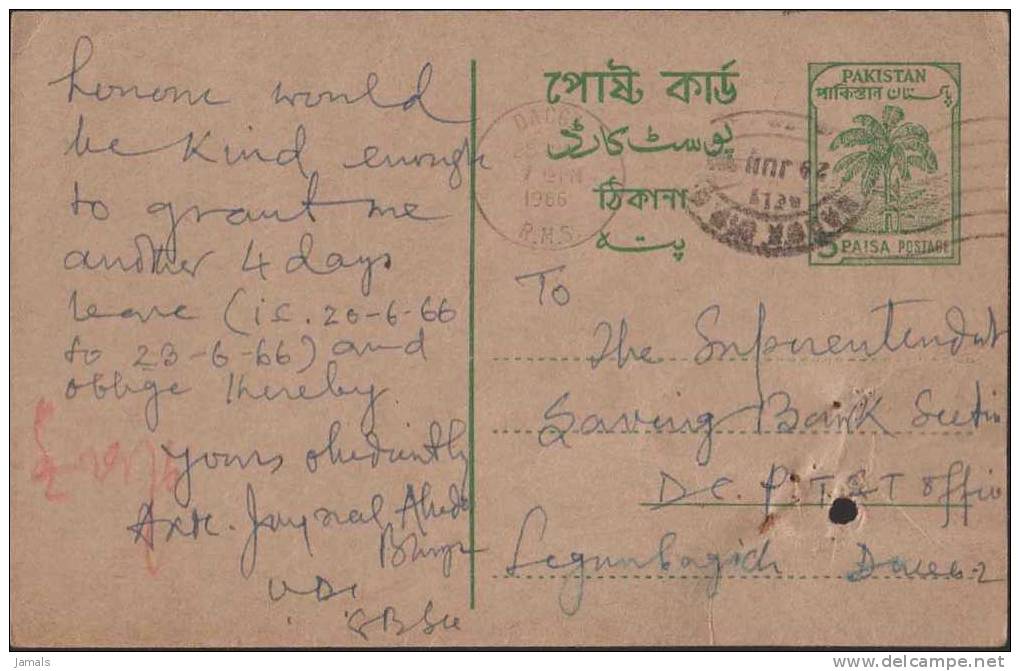 honour would
be kind enough
to grant me
another 4 days
leave (i.e. 20-6-66
to 23-6-66) and
oblige thereby
yours obediently
Jaynal
Bhuya
U.D.
পোষ্ট কার্ড
پوسٹ کارڈ
ঠিকানা
پتہ
DACCA
1966
R.M.S.
29 JUN
PAKISTAN
পাকিস্তান پاکستان
5 PAISA POSTAGE
To
The Superentendent
Saving Bank Section
P.T & T office
Segunbagich Dacca-2
Jamals
www.delcampe.net